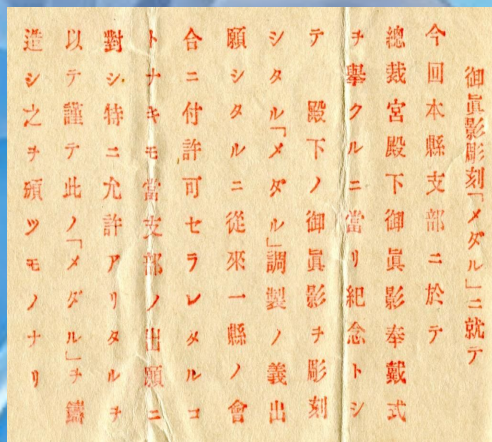 御眞影彫刻「メダル」ニ就テ
今回本縣支部ニ於テ
總裁宮殿下御眞影奉戴式
ヲ擧クルニ當リ紀念トシ
テ　殿下ノ御眞影ヲ彫刻
シタル「メダル」調製ノ義出
願シタルニ從來一縣ノ會
合ニ付許可セラレタルコ
トナキモ當支部ノ出願ニ
對シ特ニ允許アリタルヲ
以テ謹テ此ノ「メダル」ヲ鑄
造シ之ヲ頒ツモノナリ